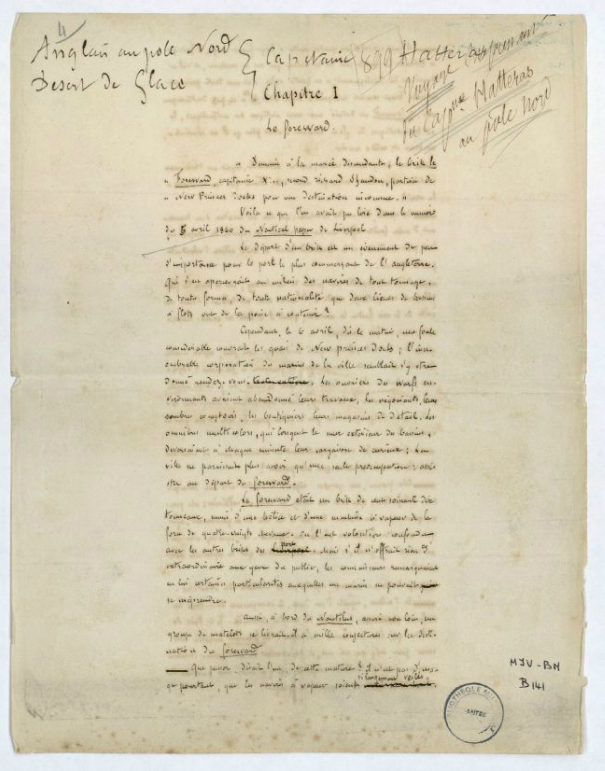 Anglais au pole Nord
Desert de Glace
Capitaine
Hatteras
Voyage
du Capne Hatteras
au pole Nord
Chapitre I
Le forward.
" Demain à la marée descendante, le brick le
" Forward, capitaine K. Z., second, Richard Shandon, partira de
" New Princes Docks pour une destination inconnue. "
Voilà ce que l'on avait pu lire dans le numéro
du 5 avril 1860 du Nautical paper de Liverpool
Le départ d'un brick est un évènement de peu
d'importance pour le port le plus commerçant de l'Angleterre.
Qui s'en apercevrait au milieu des navires de tout tonnage,
de toute forme, de toute nationalité que deux lieues de bassins
à flots ont de la peine à contenir ?
Cependant, le 6 avril, dès le matin, une foule
considérable couvrait les quais de New princes Docks ; l'innom-
brable corporation des marins de la ville semblait s'y être
donné rendez-vous. Les ouvriers des warfs en-
vironnants avaient abandonné leurs travaux, les négociants, leurs
sombres comptoirs, les boutiquiers leurs magasins de détail. Les
omnibus multicolores, qui longent le mur extérieur des bassins,
déversaient à chaque minute leur cargaison de curieux ; la
ville ne paraissait plus avoir qu'une seule préoccupation : assis-
ter au départ du forward.
Le forward était un brick de cent soixante dix
tonneaux, muni d'une hélice et d'une machine à vapeur de la
force de quatre-vingts chevaux. On l'eut volontiers confondu
avec les autres bricks du port. Mais s'il n'offrait rien d'
extraordinaire aux yeux du public, les connaisseurs remarquaient
en lui certaines particularités auxquelles un marin ne pouvait
se méprendre.
Aussi, à bord du Nautilus, ancré non loin, un
groupe de matelots se livrait-il à mille conjectures sur la desti-
nation du forward
Que penser, disait l'un, de cette mâture ? il n'est pas d'usa-
ge pourtant, que les navires à vapeur soient si largement voilés.
MJV-BM
B141